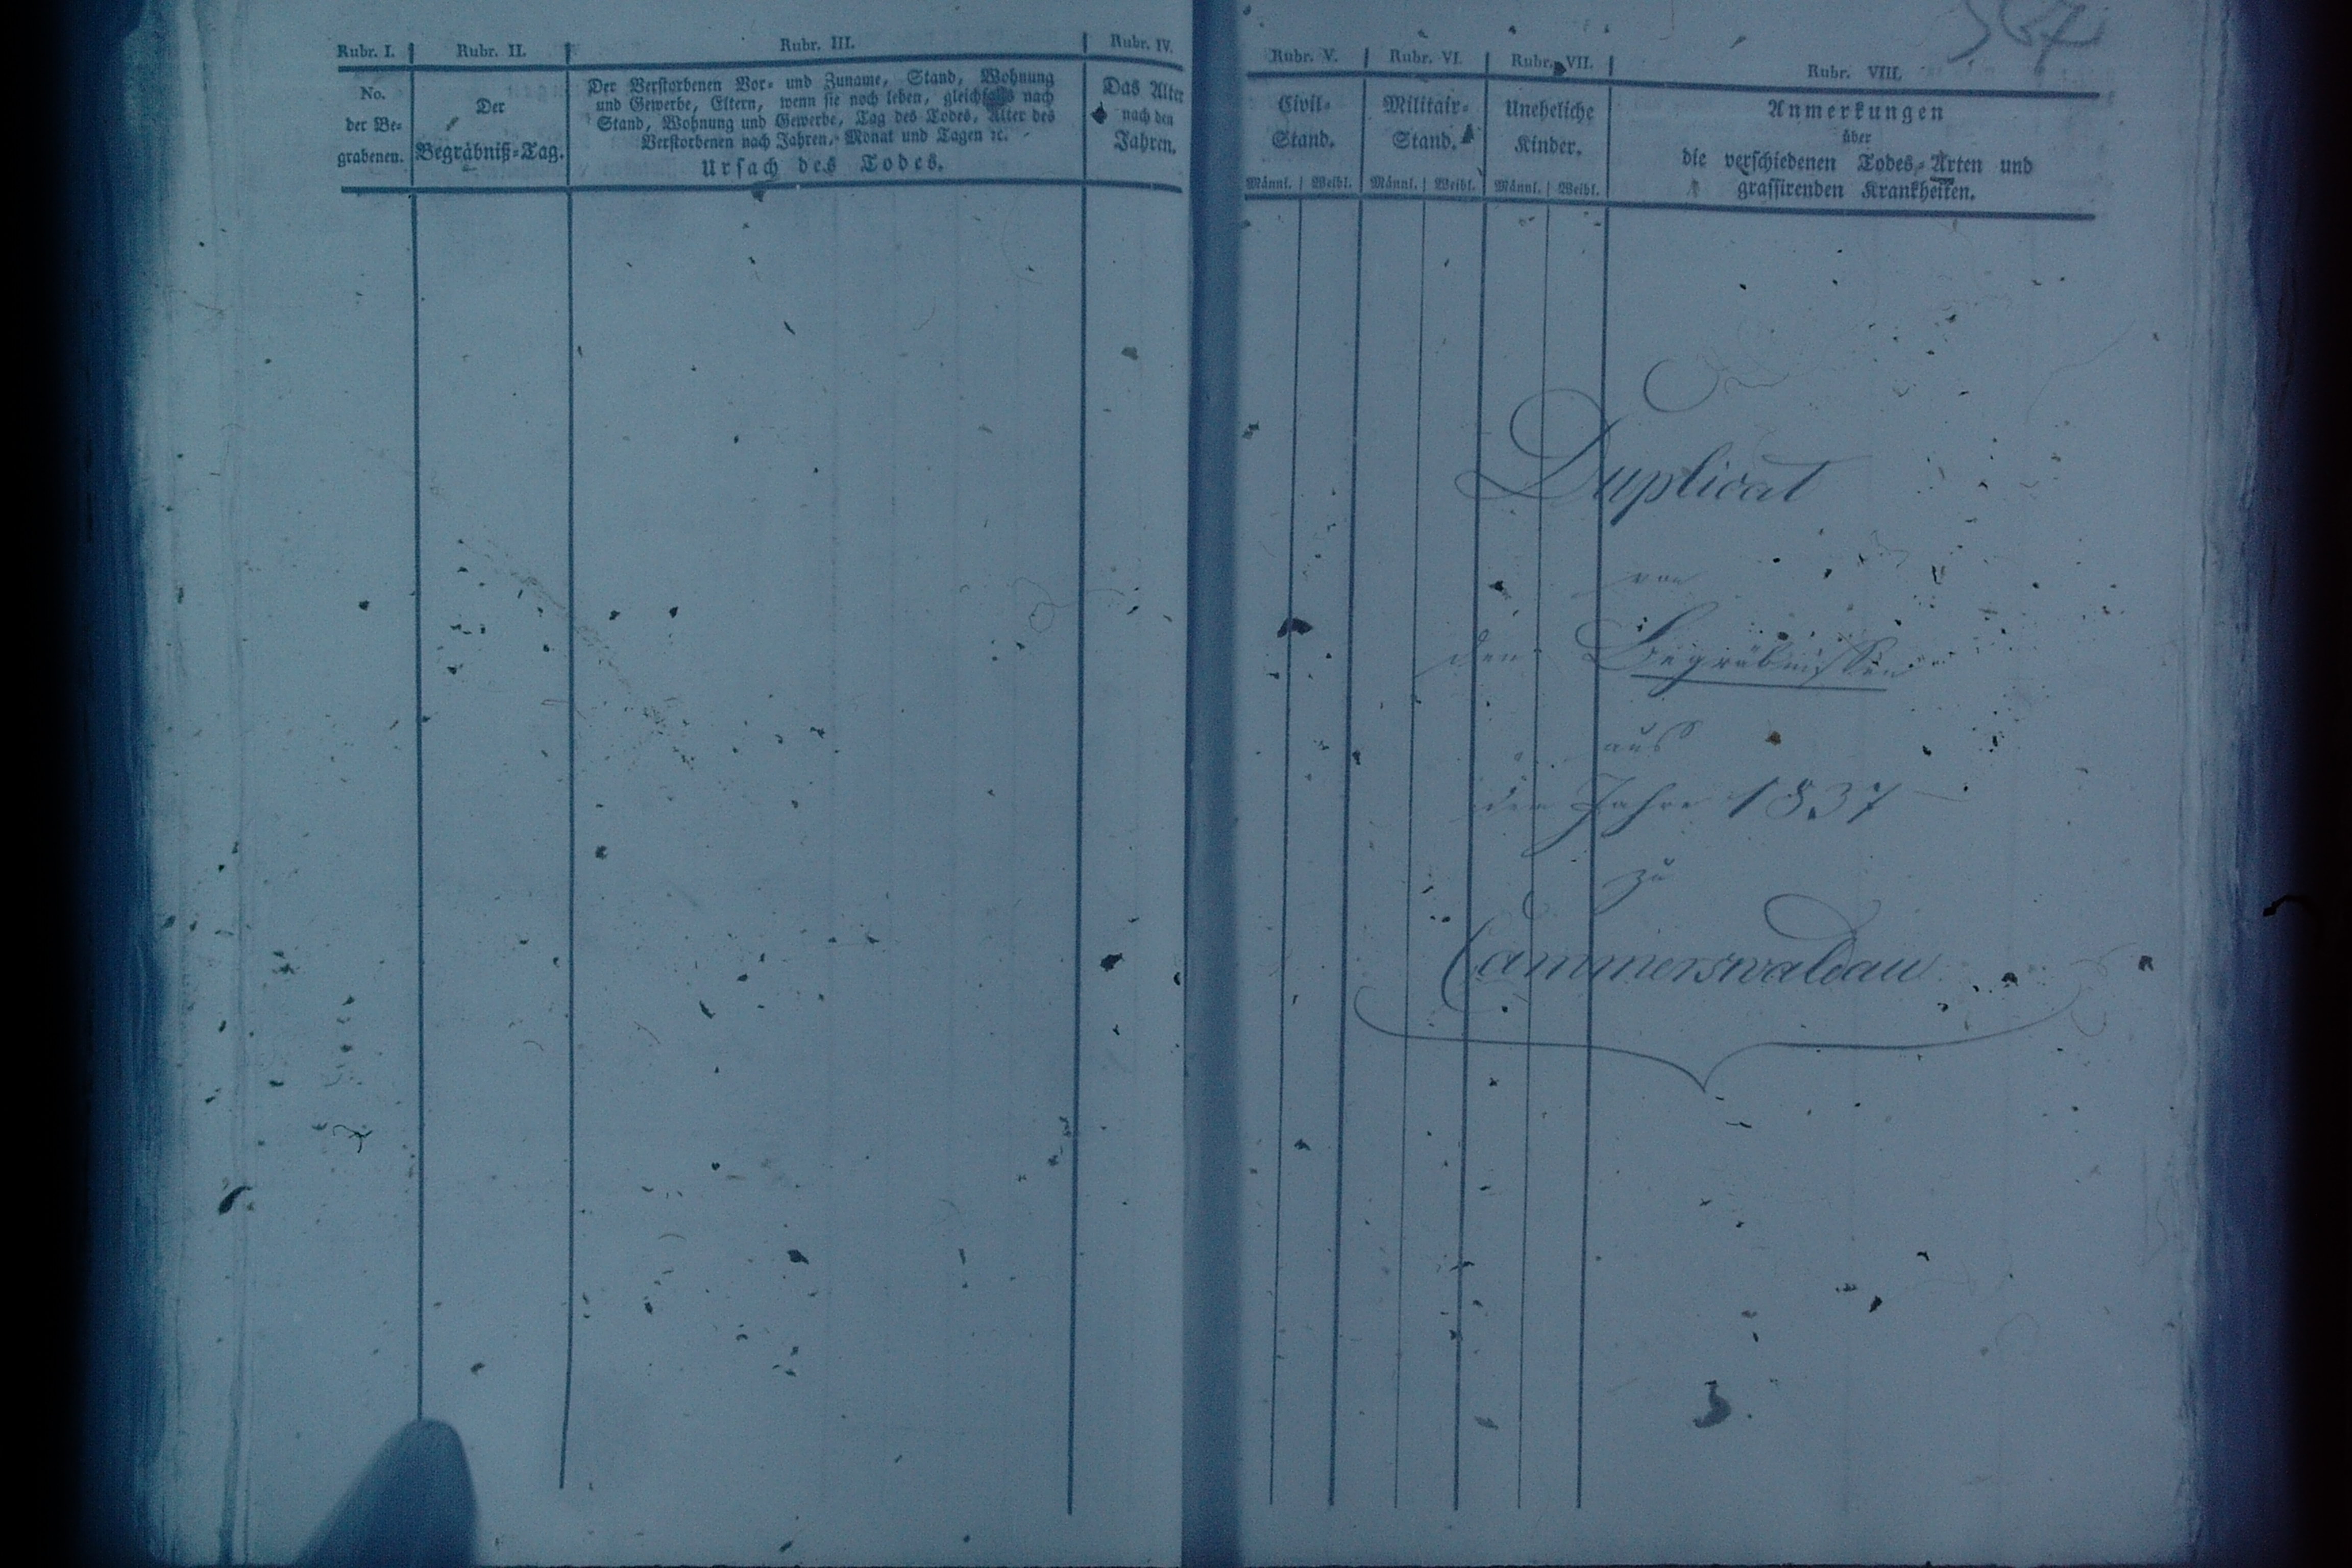 Rubr. I.
No.
der Be-
grabenen.
Rubr. II.
Der
Begräbniß-Tag.
Rubr. III.
Der Verstorbenen Vor- und Zuname, Stand, Wohnung
und Gewerbe, Eltern, wenn sie noch leben, gleichfalls nach
Stand, Wohnung und Gewerbe, Tag des Todes, Alter des
Verstorbenen nach Jahren, Monat und Tagen ꝛc.
Ursach des Todes.
Rubr. IV.
Das Alter
nach den
Jahren.
Rubr. V.
Civil-
Stand.
Männl. | Weibl.
Rubr. VI.
Militair-
Stand.
Männl. | Weibl.
Rubr. VII.
Uneheliche
Kinder.
Männl. | Weibl.
Rubr. VIII.
Anmerkungen
über
die verschiedenen Todes-Arten und
grassirenden Krankheiten.
Duplicat
von
den Begräbnissen
aus
dem Jahre 1837
zu
Cammerswaldau